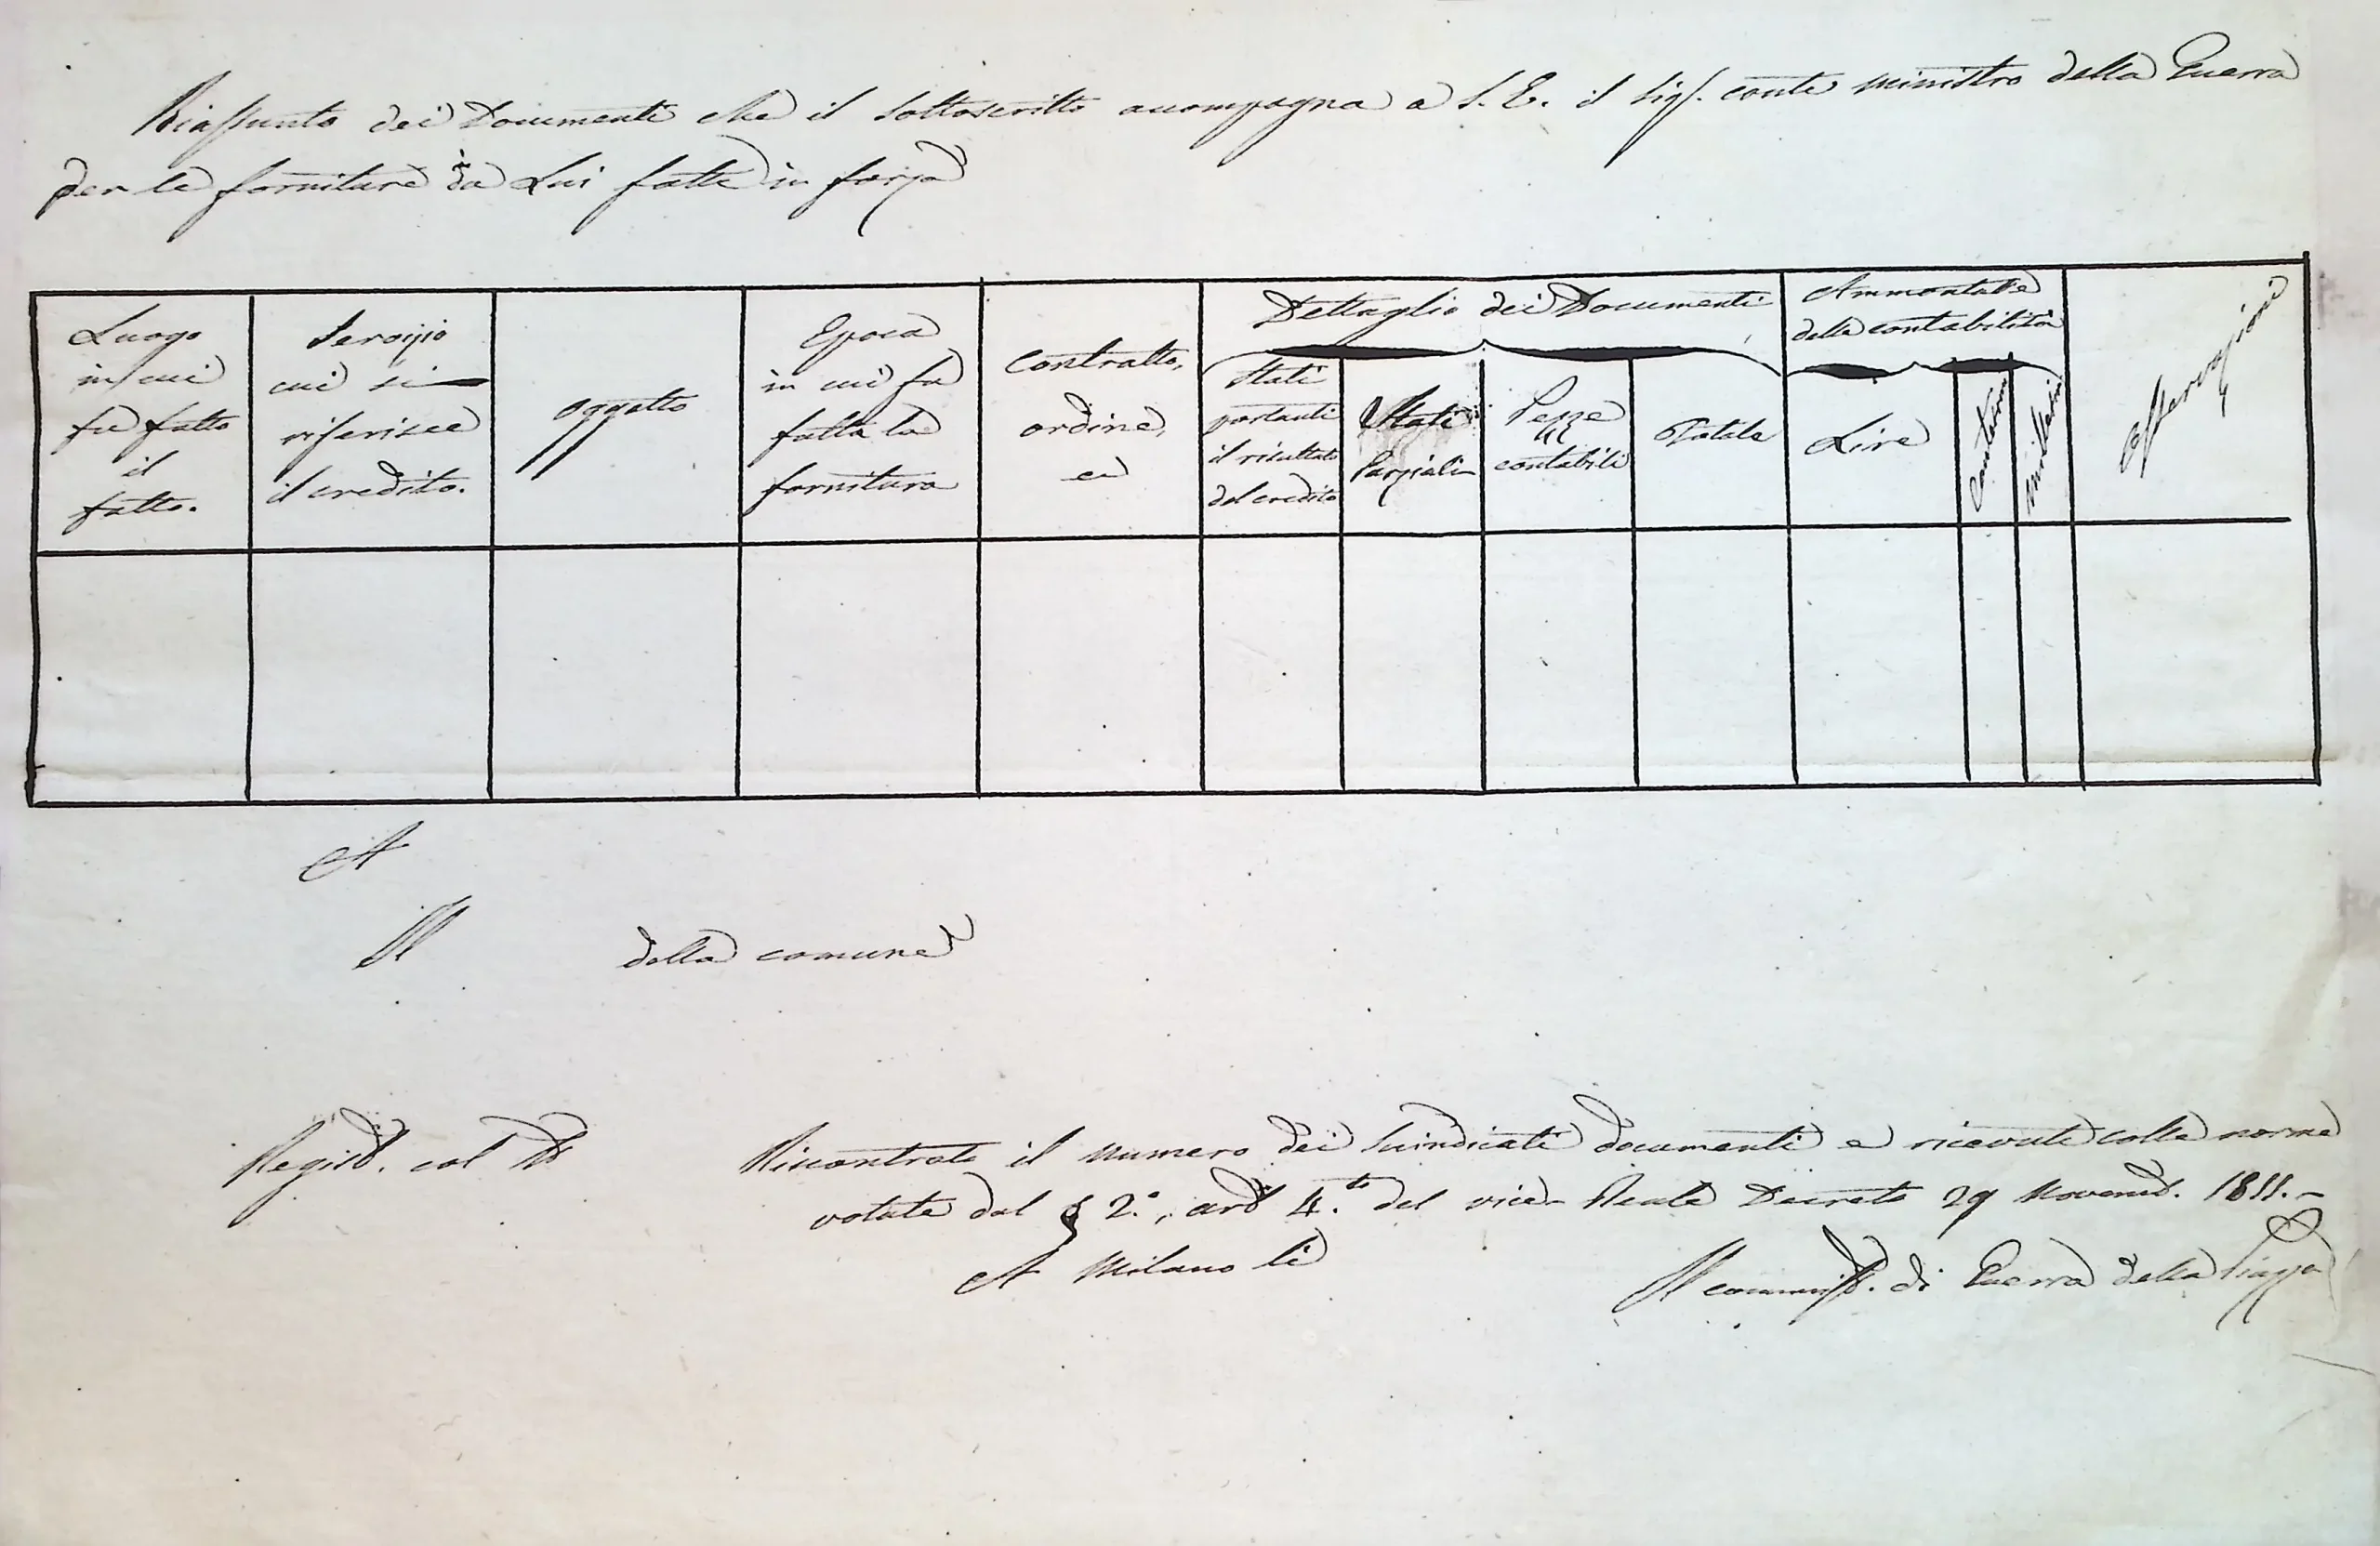 Riassunto dei Documenti che il sottoscritto accompagna a S. E. il Sig.r conte ministro della Guerra
per le forniture da Lui fatte in forza
Luogo
in cui
fu fatto
il
fatto.
Servizio
cui si
riferisce
il credito.
oggetto
Epoca
in cui fu
fatta la
fornitura
Contratto,
ordine,
Dettaglio dei Documenti
Stati
portanti
il risultato
del credito
Stati
Parziali
Pezze
contabili
Totale
Ammontare
della contabilità
Lire
Centesimi
Millesimi
Osservazioni
A
Il della comune
Regist. col N.
Riscontrato il numero dei suindicati documenti e ricevuti colle norme
volute dal § 2.°, art. 4.to del vice-Reale Decreto 29 Novemb. 1811.-
A Milano li
Il commiss. di Guerra della Piazza